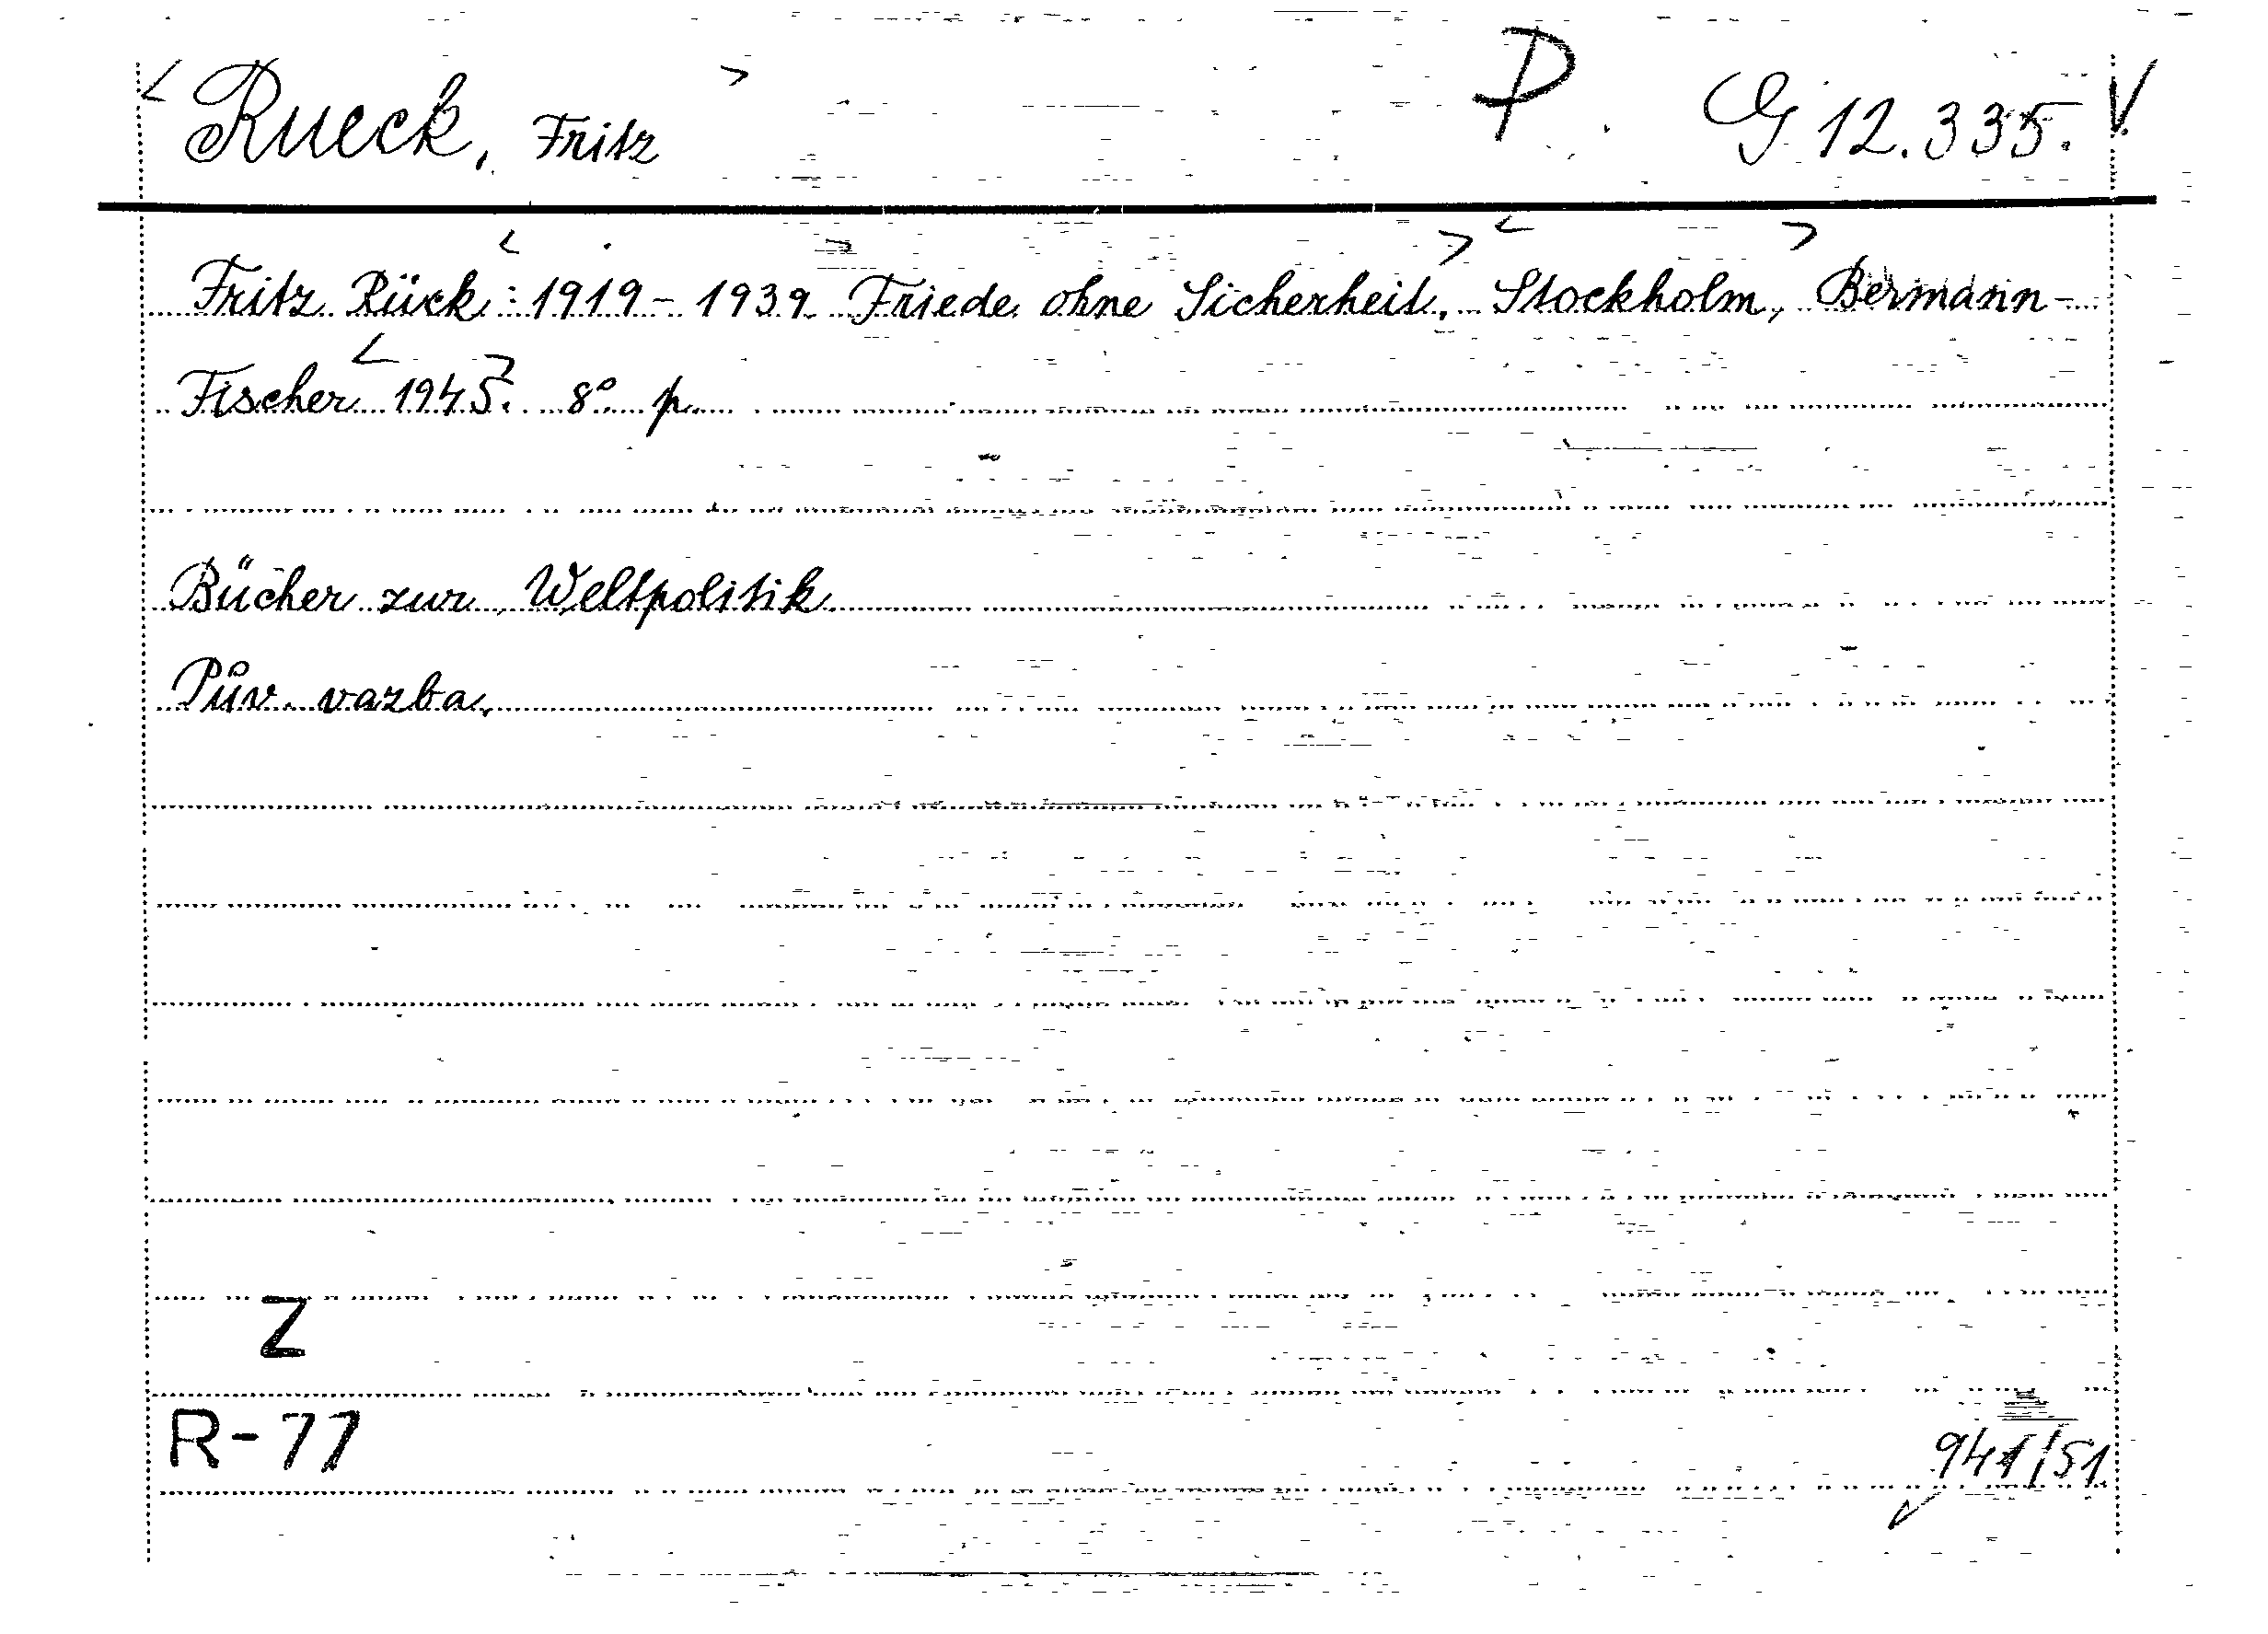 < Rueck, Fritz > P. G 12.335. V
Fritz Rück: <1919-1939 Friede ohne Sicherheit.> <Stockholm,> Bermann-
Fischer <1945>. 8° p.
Bücher zur Weltpolitik
Pův. vazba.
Z
R-77
941/51.